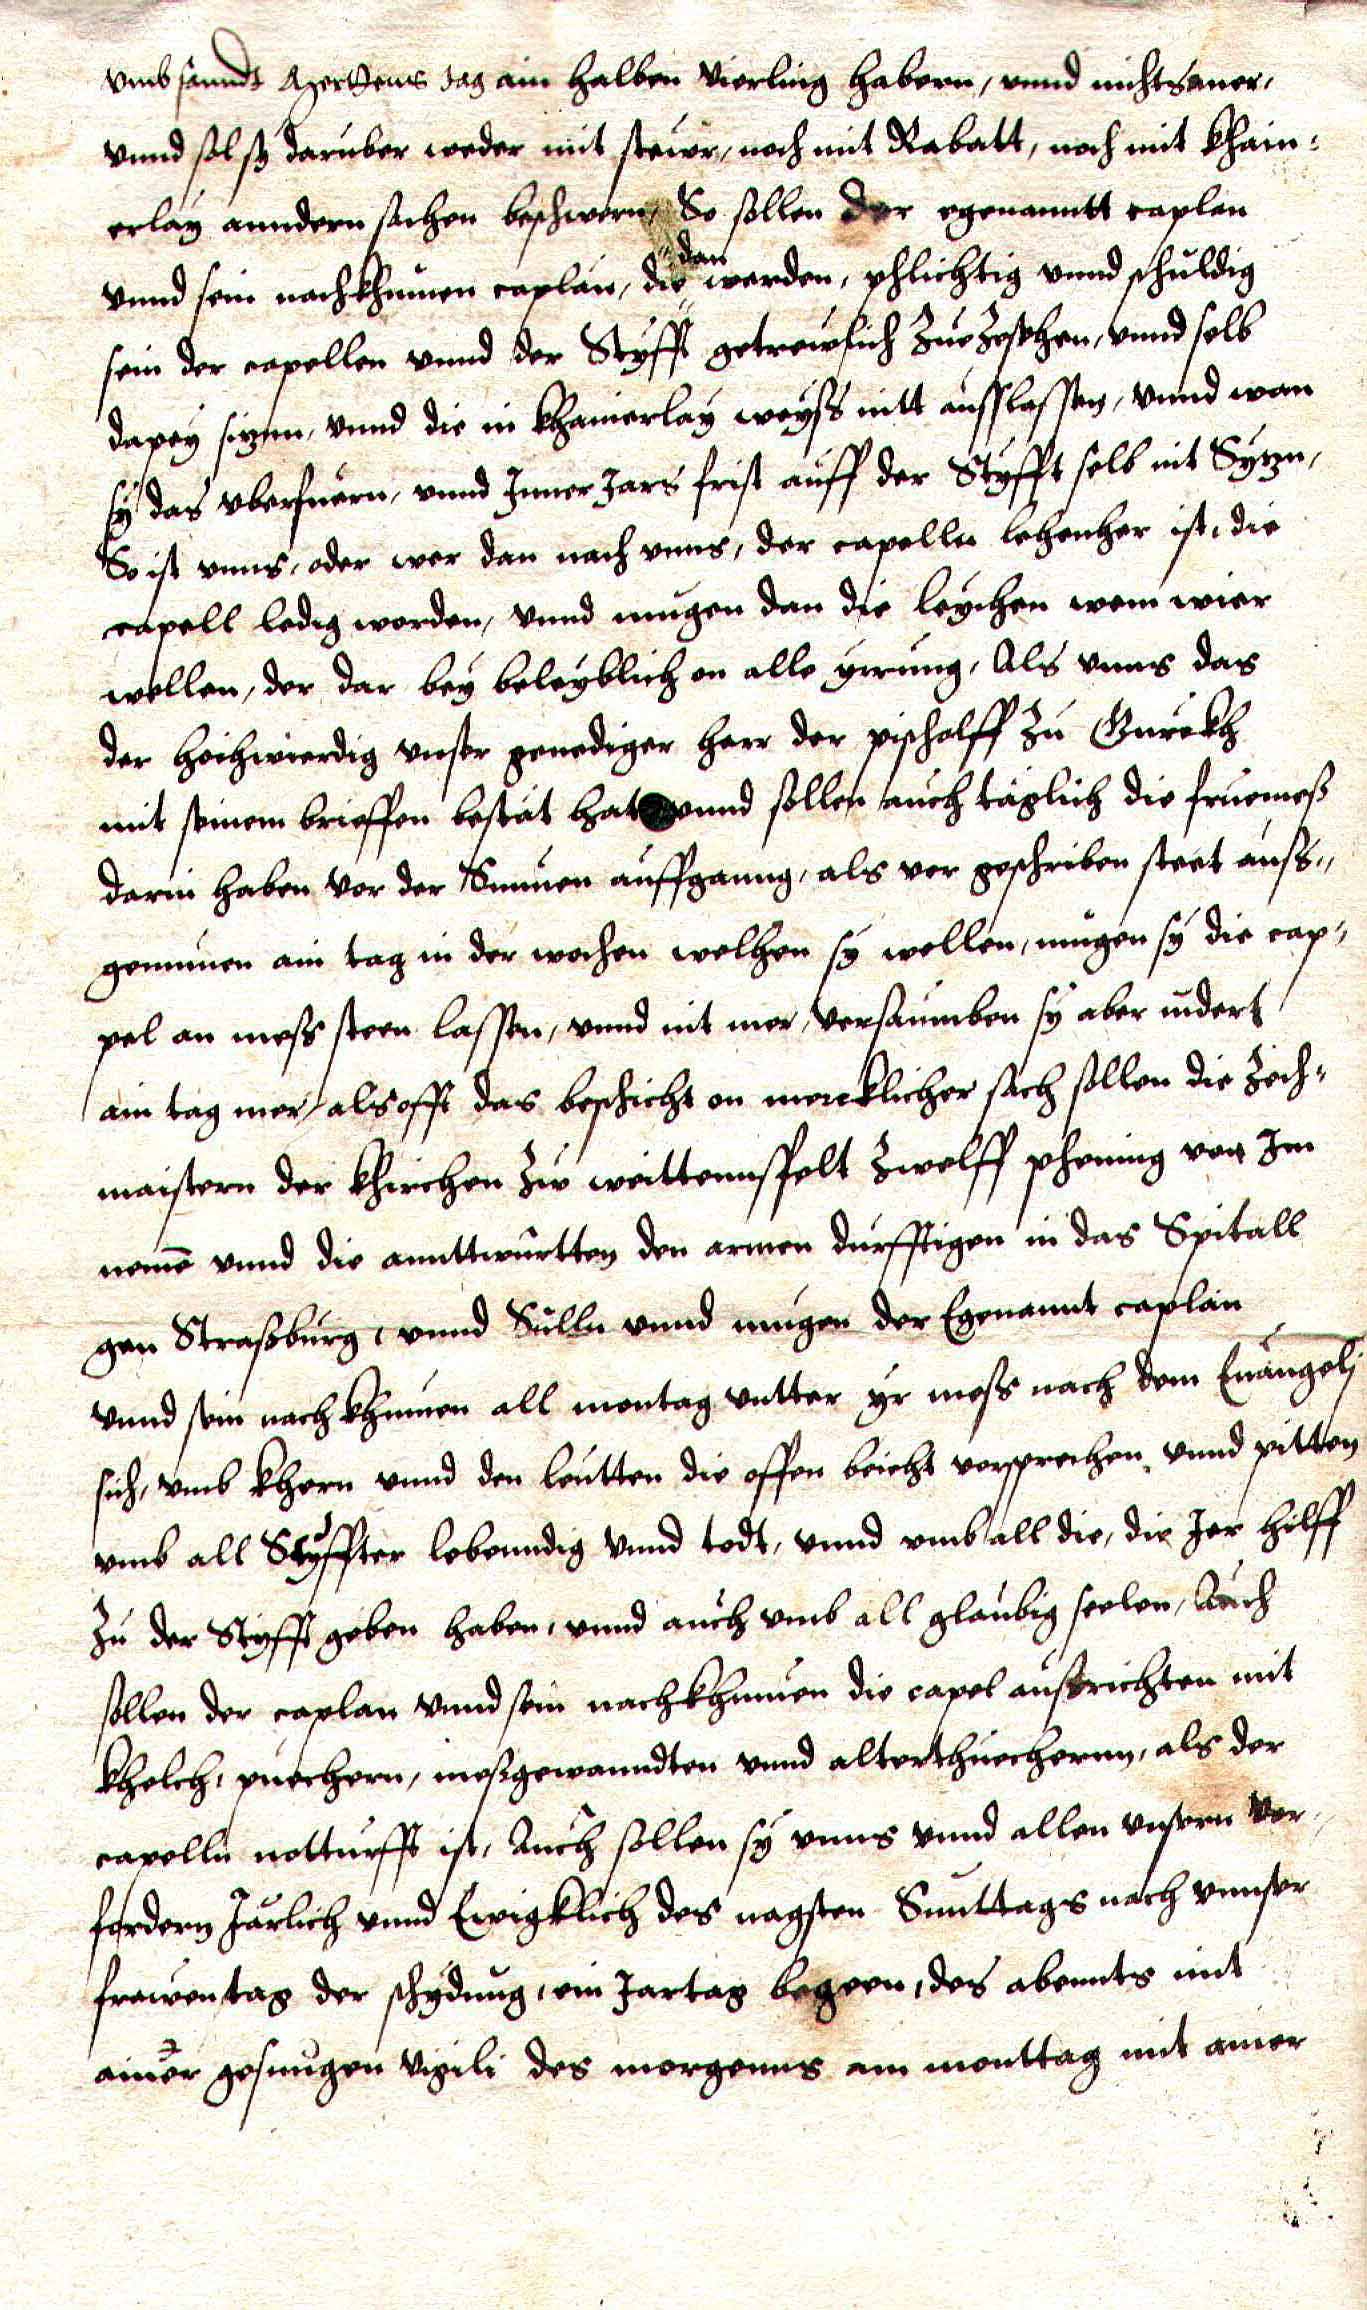 vmb sanndt Merttens tag ain halben vierling habern, vnnd nichts mer,
vnnd sol sy daruber weder mit steur, noch mit Rabatt, noch mit khain=
erlay anndern sachen beschwern, So sollen der egenanntt caplan
vnnd sein nachkhumen caplan, die dan werden, phlichtig vnnd schuldig
sein der capellen vnnd der Styfft getrewlich zuezesehen, vnnd selb
dapey sizen, vnnd die in khainerlay weyss nitt auslassen, vnnd wan
sy das vberfuern, vnnd Inner Jars frist auff der Styfft selb nit Syzn,
So ist vnns, oder wer dan nach vnns, der capelln lehenher ist, die
capell ledig worden, vnnd mugen dan die leychen wem wier
wellen, der dar bey beleyblich on alle yrrung, Als vnns das
der hochwierdig vnser genediger herr der pischolff zu Gurckh
mit seinem brieffen bestät hat vnnd sollen auch täglich die fruemess
darin haben vor der Sunnen auffganng, als vor geschriben steet auss=
genumen ain tag in der wochen welhen sy wellen, mugen sy die cap=
pel an mess steen lassen, vnnd nit mer, versaumben sy aber indert
ain tag mer, als offt das beschicht on mercklicher sach sollen die zech=
maistern der khirchen zw weittennsfelt zwelff phening von Im
nemē vnnd die annttwurtten den armen durfftigen in das Spitall
gen Strassburg, vnnd Sulln vnnd mugen der Egenannt caplan
vnnd sein nachkhumen all montag vntter yr mess nach dem Euangelj
sich, vmb khern vnnd den leutten die offen beicht vorsprechen, vnnd pitten
vmb all Styffter lebenndig vnnd todt, vnnd vmb all die, die Jer hilff
zu der Styfft geben haben, vnnd auch vmb all glaubig seelen, Auch
sollen der caplan vnnd sein nachkhumen die capel aussrichten mit
khelch, puechern, messgewanndten vnnd alterthuechernn, als der
capelln notturfft ist, Auch sollen sy vnns vnnd allen vnsern vor=
fordern Järlich vnnd Ewigklich des nagsten Sunttags nach vnnser
frawen tag der schydung, ein Jartag begeen, des abennts mit
ainer gesungen vigili des morgenns am monttag mit ainer